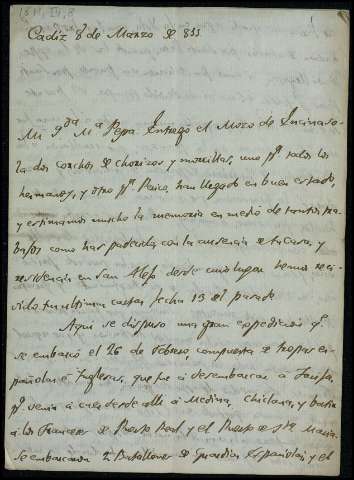 Cadiz 8 de Marzo de 811
Mi q.da M.a Pepa Entregó el Mozo de Encinaso-
la dos corchos de chorizos y morcillas, uno p.a todos los
hermanos, y otro p.a Perico, han llegado en buen estado,
y estimamos mucho la memoria en medio de tantos tra-
bajos como has padecido con la ausencia de tu casa, y
residencia en San Alejo desde cuio lugar hemos reci-
vido tu ultima carta fecha 13 del pasado
Aqui se dispuso una gran expedicion q.e
se embarcó el 26 de Febrero, compuesta de tropas es-
pañolas é Inglesas, que fue á desembarcar á Tarifa,
p.a venir á caer desde alli á Medina, Chiclana, y batir
á los Franceses de Puerto Real y el Puerto de S.ta Maria
Se embarcaron 2 Batallones de Guardias Españolas, y el